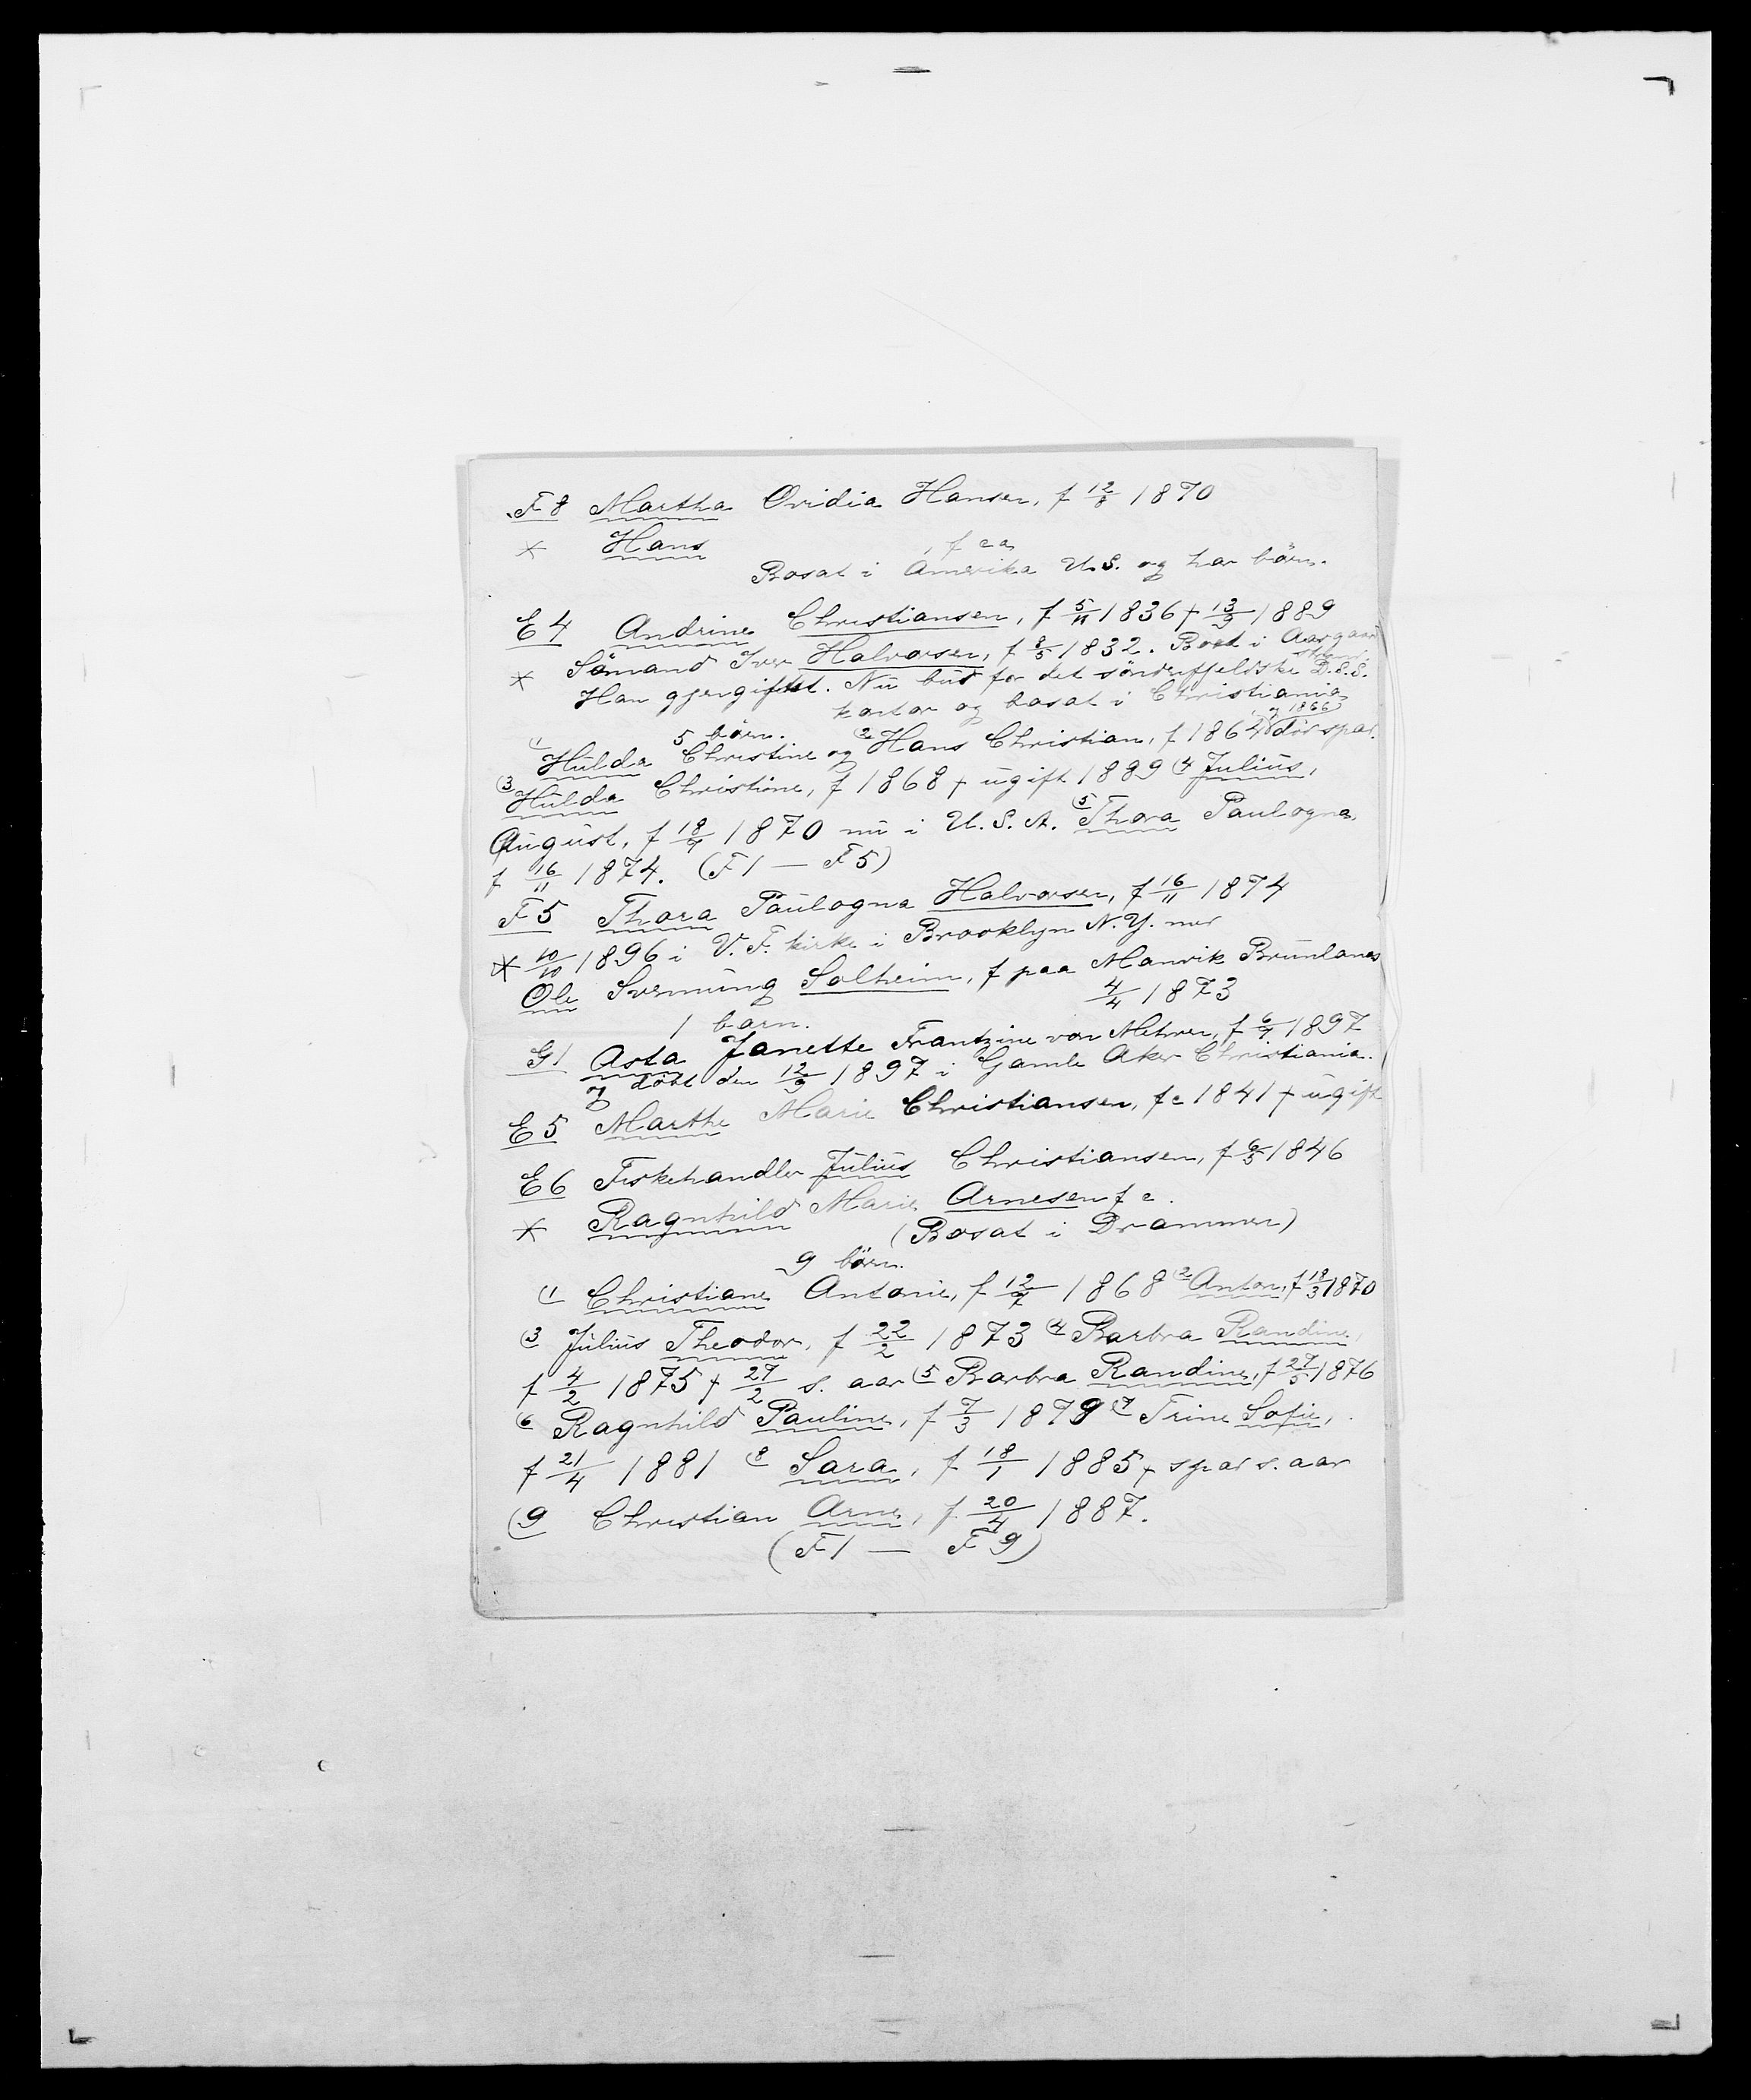 F 8 Martha Ovidia Hansen, f 12/8 1870
* Hans , f ca
Bosat i Amerika U.S. og har börn.
E 4 Andrine Christiansen, f 5/11 1836 † 13/9 1889
* Sömand Iver Halvorsen, f 8/5 1832. Boet i Aasgaard
strand.
Han gjengiftet. Nu bud for det söndenfjeldske D.S.S.
kontor og bosat i Christiania
5 börn. og 1866
(1 Hulda Christine og (2 Hans Christian, f 1864 dör spæd.
(3 Hulda Christine, f 1868 † ugift 1889 (4 Julius,
August, f 18/7 1870 nu i U.S.A. (5 Thora Paulogna,
f 16/11 1874. (F 1 — F 5)
F 5 Thora Paulogna Halvorsen, f 16/11 1874
* 10/10 1896 i V. F. kirke i Brooklyn N.Y. med
Ole Svenning Solheim, f paa Manvik Brunlanes
4/4 1873
1 barn.
G 1 Asta Janette Frantzine von Mehren, f 6/7 1897
og döbt den 12/9 1897 i Gamle Aker Christiania.
E 5 Marthe Marie Christiansen, f c 1841 † ugift
E 6 Fiskehandler Julius Christiansen, f 6/5 1846
* Ragnhild Marie Arnesen f c.
(Bosat i Drammen)
9 börn.
(1 Christiane Antonie, f 12/7 1868 (2 Anton, f 18/3 1870
(3 Julius Theodor, f 22/2 1873 (4 Barbra Randine,
f 4/2 1875 † 27/2 s. aar (5 Barbra Randine, f 27/5 1876
(6 Ragnhild Pauline, f 7/3 1879 (7 Trine Sofie,
f 21/4 1881 (8 Sara, f 18/1 1885 † spæd s. aar
(9 Christian Arne, f 20/4 1887.
(F 1 — F 9)